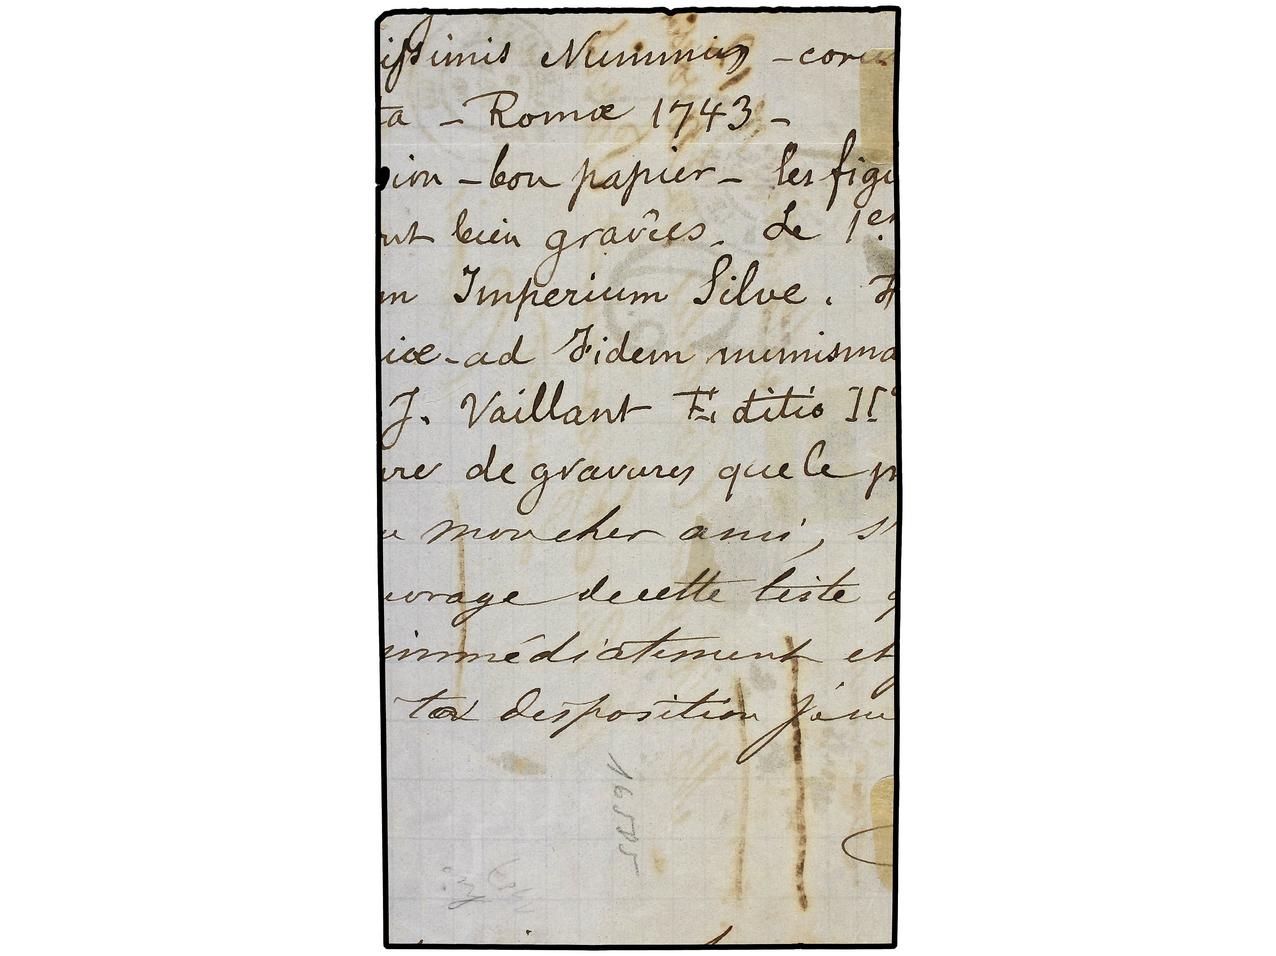 issimis Nummis - coru
ta - Romæ 1743 -
sion - bon papier - les figu
nt bien gravées. Le 1er
m Imperium Silve.
iæ - ad Fidem numisma
J. Vaillant Editio II
de gravures que le pr
mon cher ami, s'
uvrage de cette liste
immédiatement et
ta disposition
16505